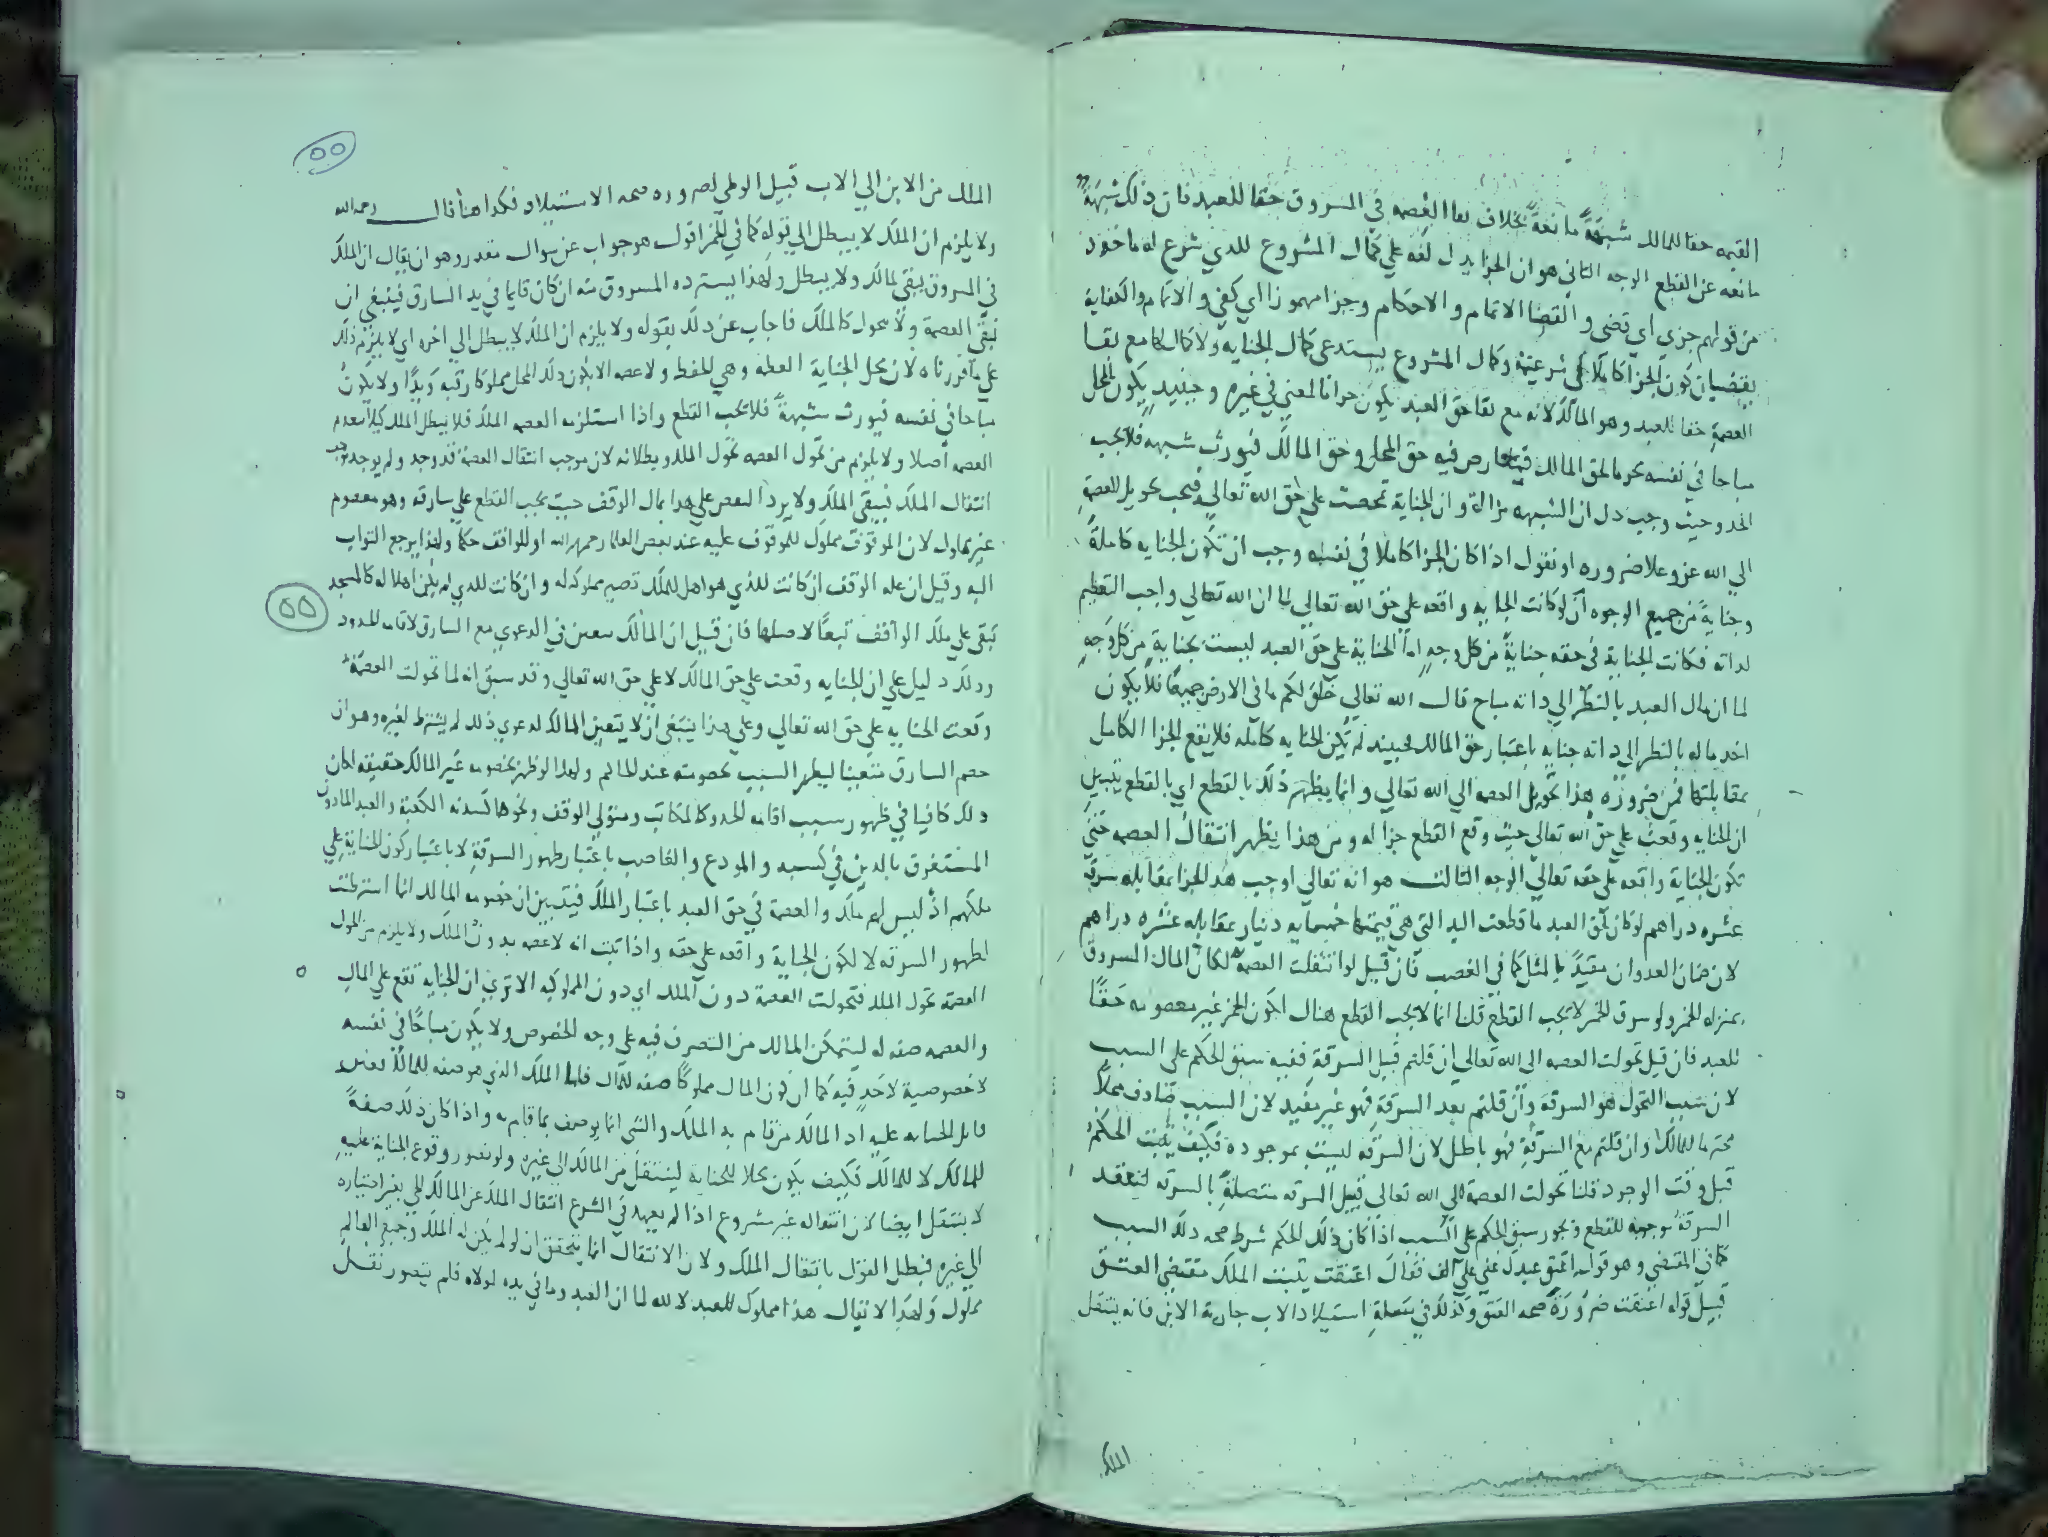 القيمه حقا للمالك شبهة مانعة بخلاف بقا العصمه في المسروق حقا للعبد فان ذلك شبهة
مانعه عن القطع الوجه الثاني هو ان الجزا يدل لغه علي كمال المشروع للذي شرع له ماخوذ
من قولهم جزي اي قضي و القضا الاتمام و الاحكام وجزا مهموزا اي كفي و الاتمام والكفاية
يقتضيان كون الجزا كاملا في شرعيته وكمال المشروع يستدعي كمال الجنايه ولا كمال لها مع بقا
العصمة حقا للعبد وهو المالك لانه مع بقا حق العبد يكون حراما لمعني في غيره وحينيد يكون المحل
مباحا في نفسه محرما لحق المالك فيتعارض فيه حق المحل وحق المالك فيورث شبهه فلا تجب
الحد وحيث وجب دل ان الشبهه زالت وان الجناية تمحضت علي حق الله تعالي فيجب تحويل العصمة
الي الله عز وعلا ضروره او نقول اذا كان الجزا كاملا في نفسه وجب ان تكون الجنايه كاملة
وجناية من جميع الوجوه ان لو كانت الجنايه واقعه علي حق الله تعالي لما ان الله تعالي واجب التعظيم
لذاته فكانت الجناية في حقه جناية من كل وجه اما الجناية علي حق العبد ليست بجناية من كل وجه
لما ان مال العبد بالنظر الي ذاته مباح قال الله تعالي خلق لكم ما في الارض جميعا فلا يكون
اخذ ماله بالنظر الي ذاته جنايه باعتبار حق المالك فحينيد لم تكن الجنايه كامله فلا يقع الجزا الكامل
بمقابلتها فمن ضرورة هذا تحويل العصمه الي الله تعالي وانما يظهر ذلك بالقطع اي بالقطع يتبين
ان الجنايه وقعت علي حق الله تعالي حيث وقع القطع جزا له ومن هذا يظهر انتقال العصمه حتي
تكون الجناية واقعه علي حقه تعالي الوجه الثالث هو انه تعالي اوجب هذا الجزا بمقابله سرقة
عشره دراهم لو كان لحق العبد ما قطعت اليد التي هي قيمتها خمسمايه دينار بمقابله عشره دراهم
لان ضمان العدوان مقيد بالمثل كما في الغصب فان قيل لو انتقلت العصمة لكان المال المسروق
بمنزله الخمر ولو سرق الخمر لا يجب القطع قلنا انما لا يجب القطع هناك لكون الخمر غير معصومه حقا
للعبد فان قيل تحولت العصمه الي الله تعالي ان قلتم قبل السرقة ففيه سبق الحكم علي السبب
لان سبب التحول هو السرقة وان قلتم بعد السرقة فهو غير مفيد لان السبب صادف محلا
محترما للمالك وان قلتم مع السرقة فهو باطل لان السرقه ليست بموجوده فكيف يثبت الحكم
قبل وقت الوجود قلنا تحولت العصمة الي الله تعالي قبيل السرقه متصلة بالسرقه لتنعقد
السرقة موجبه للقطع ويجوز سبق الحكم علي السبب اذا كان ذلك الحكم شرط صحه ذلك السبب
كما في المقتضي وهو قوله اعتق عبدك عني علي الف فقال اعتقت يثبت الملك مقتضي العتق
قبيل قوله اعتقت ضرورة صحه العتق وكذلك في مسلة استيلاد الاب جارية الابن فانه ينتقل
الملك
الملك من الابن الي الاب قبيل الوطي لضروره صحه الاستيلاد فكذا هنا قال رحمه الله
ولا يلزم ان الملك لا يبطل الي قوله كما في الخمر اقول هو جواب عن سوال مقدر وهو ان يقال ان الملك
في المسروق يبقي لمالكه ولا يبطل ولهذا يسترده المسروق منه ان كان قايما في يد السارق فينبغي ان
تبقي العصمة ولا تتحول كالملك فاجاب عن ذلك بقوله ولا يلزم ان الملك لا يبطل الي اخره اي لا يلزم ذلك
علي ما قررناه لان محل الجناية العصمه وهي الحفظ ولا عصمه الا بكون ذلك المحل مملوكا رقبه ويدا ولا يكون
مباحا في نفسه فيورث شبهة فلا تجب القطع واذا استلزمه العصمه الملك فلا يبطل الملك كيلا تنعدم
العصمه اصلا ولا يلزم من تحول العصمه تحول الملك وبطلانه لان موجب انتقال العصمة قد وجد ولم يوجد موجب
انتقال الملك فيبقي الملك ولا يرد النقض علي هذا بمال الوقف حيث يجب القطع علي سارقه وهو معصوم
غير مملوك لان الموقوف مملوك للموقوف عليه عند بعض العلما رحمهم الله او للواقف حكما ولهذا يرجع الثواب
اليه وقيل ان غله الوقف ان كانت للذي هو اهل للملك تصير مملوكه له وان كانت للذي لم يكن اهلا له كالمسجد
تبقي علي ملك الواقف تبعا لاصلها فان قيل ان المالك متعين في الدعوي مع السارق لاقامه الحدود
وذلك دليل علي ان الجنايه وقعت علي حق المالك لا علي حق الله تعالي وقد سبق انه لما تحولت العصمة
وقعت الجنايه علي حق الله تعالي وعلي هذا ينبغي ان لا يتعين المالك لدعوي ذلك لم يشترط لغيره وهو ان
خصم السارق متعينا ليظهر السبب بخصومته عند الحاكم ولهذا لو ظهر بخصومه غير المالك حقيقه لكان
ذلك كافيا في ظهور سبب اقامه الحد كالمكاتب ومتولي الوقف ونحوها كسدنه الكعبه والعبد الماذون
المستغرق بالدين في كسبه والمودع والغاصب باعتبار ظهور السرقة لا باعتبار كون الجناية علي
ملكهم اذ ليس لهم ملك والعصمة في حق العبد باعتبار الملك فيتبين ان خصومه المالك انما اشترطت
لظهور السرقه لا لكون الجناية واقعه علي حقه واذا ثبت انه لا عصمه بدون الملك ولا يلزم من تحول
العصمه تحول الملك فتحولت العصمة دون الملك اي دون المملوكيه الا تري ان الجنايه تقع علي المال
والعصمه صفه له ليتمكن المالك من التصرف فيه علي وجه الخصوص ولا يكون مباحا في نفسه
لا خصوصية لاحد فيه كما ان كون المال مملوكا صفه للمال فاما الملك الذي هو صفه للمالك فغير
قابل للجنايه عليه اذ المالك من قام به الملك والشي انما يوصف بما قام به واذا كان ذلك صفة
للمالك لا للمالك فكيف يكون محلا للجنايه لينتقل من المالك الي غيره ولو تصور وقوع الجناية عليه
لا ينتقل ايضا لان انتقاله غير مشروع اذا لم يعهد في الشرع انتقال الملك عن المالك الي بغير اختياره
الي غيره فبطل القول بانتقال الملك ولان الانتقال انما يتحقق ان لو لم يكن له الملك وجميع العالم
مملوك ولهذا لا يقال هذا مملوك للعبد لا لله لما ان العبد وما في يده لمولاه فلم يتصور نقل
٥٥
٥٥